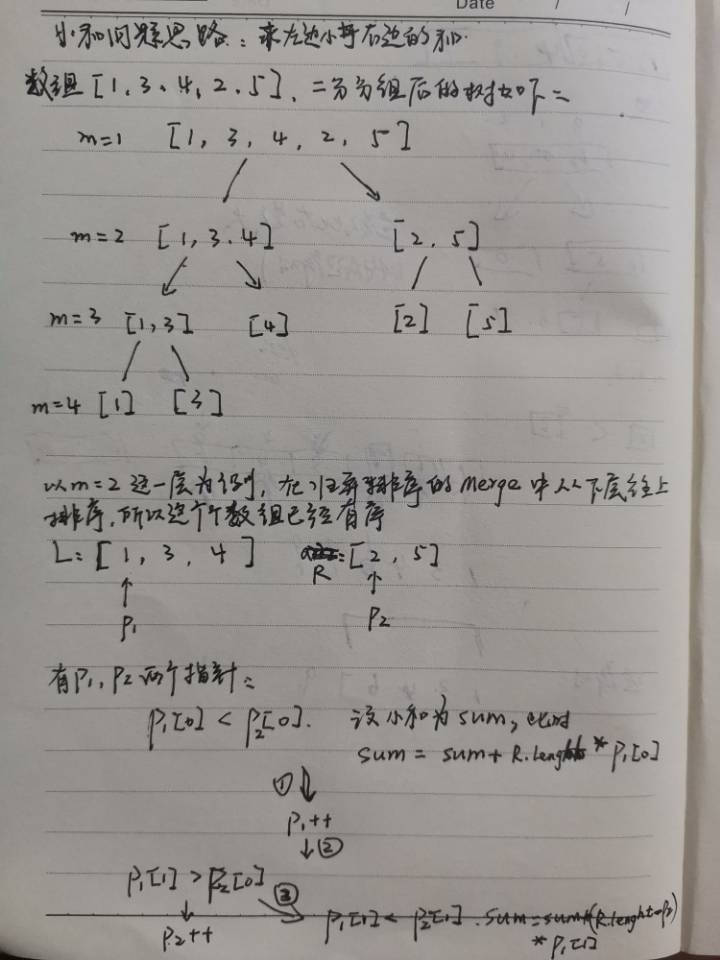 Date / /
小和问题思路：求左边小于右边的和.
数组[1,3,4,2,5]，二分分组后的树如下：
m=1 [1, 3, 4, 2, 5]
m=2 [1,3.4] [2, 5]
m=3 [1,3] [4] [2] [5]
m=4 [1] [3]
以m=2这一层为例，在归并排序的merge中从下底往上
排序，所以这个个数组已经有序
L: [1, 3, 4] R=[2, 5]
P1 P2
有P1, P2两个指针：
P1[0] < P2[0]. 设小和为sum，此时
sum = sum + R.lenght * P1[0]
① P1++
②
P1[1] > P2[0] ③
P2++ P1[1] < P2[1]. sum=sum+(R.lenght-P2)
* P1[1]